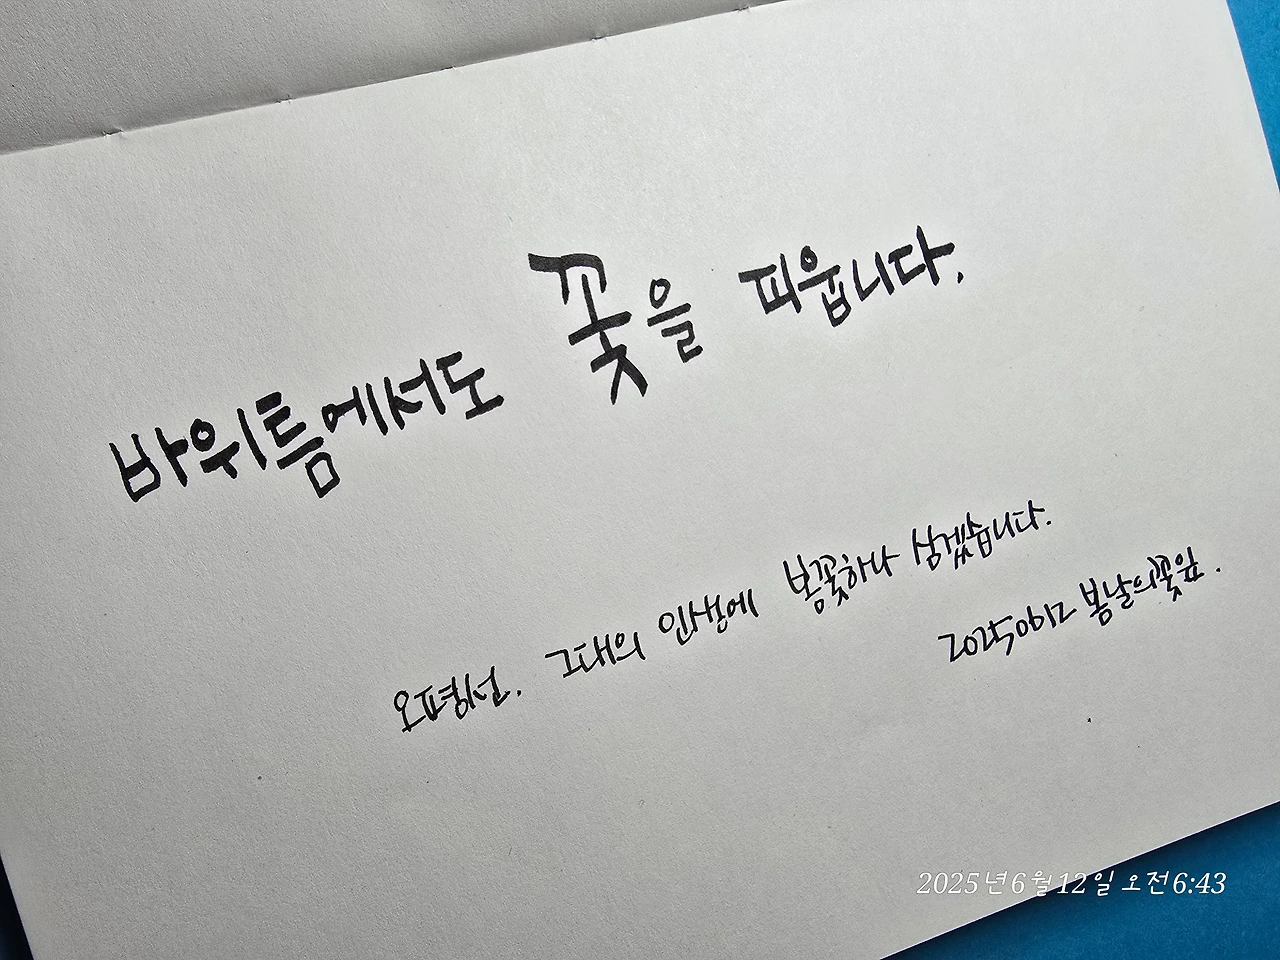 바위틈에서도 꽃을 피웁니다.
오평선. 그대의 인생에 봄꽃하나 심겠습니다.
20250612 봄날의꽃잎.
2025년 6월 12일 오전 6:43